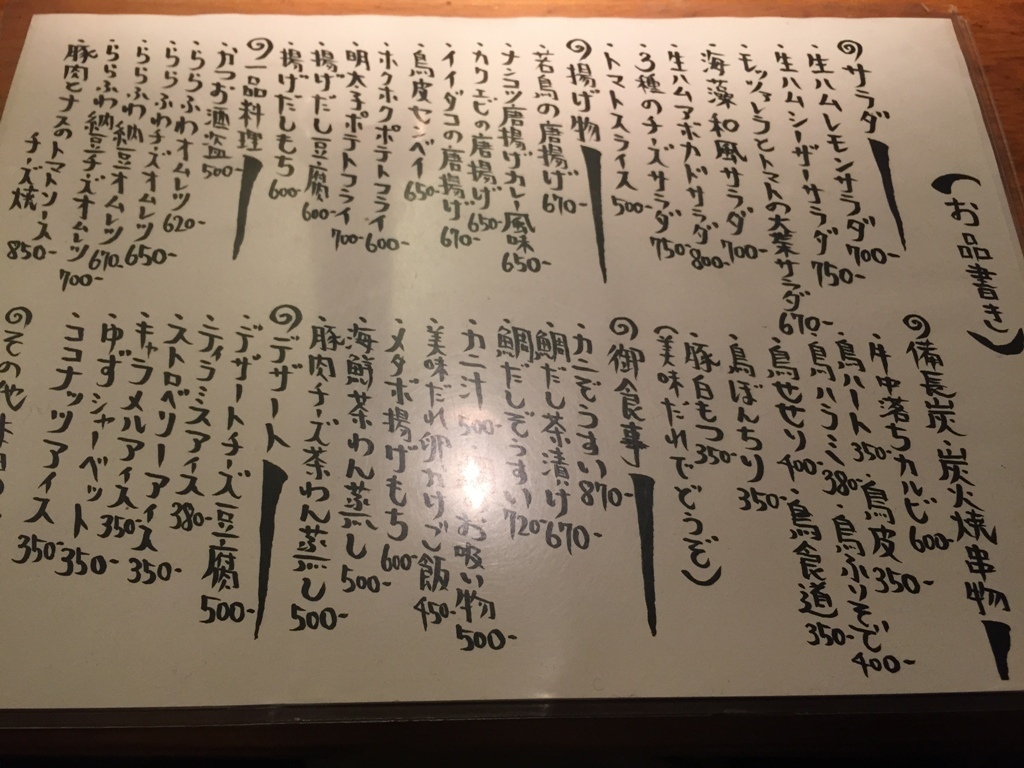 (お品書き)
サラダ
・生ハムレモンサラダ 700-
・生ハムシーザーサラダ 750-
・モッツァレラとトマトの大葉サラダ 670-
・海藻和風サラダ 700-
・生ハムアボカドサラダ 800-
・3種のチーズサラダ 750-
・トマトスライス 500-
揚げ物
・若鳥の唐揚げ 670-
・ナンコツ唐揚げカレー風味 650-
・カワエビの唐揚げ 650-
・イイダコの唐揚げ 670-
・鳥皮センベイ 650-
・ホクホクポテトフライ 600-
・明太子ポテトフライ 700-
・揚げだし豆腐 600-
・揚げだしもち 600-
一品料理
・かつお酒盗 500-
・ふわふわオムレツ 620-
・ふわふわチーズオムレツ 650-
・ふわふわ納豆オムレツ 670-
・ふわふわ納豆チーズオムレツ 700-
・豚肉とナスのトマトソース
チーズ焼 850-
備長炭・炭火焼串物
・牛中落ちカルビ 600-
・鳥ハート 350 ・鳥皮 350-
・鳥ハラミ 380- ・鳥ふりそで 400-
・鳥せせり 400- ・鳥食道 350-
・鳥ぼんちり 350-
・豚白もつ 350-
(美味たれでどうぞ)
御食事
・カニぞうすい 870-
・鯛だし茶漬け 670-
・鯛だしぞうすい 720-
・カニ汁 500- お吸い物 500-
・美味たれ卵かけご飯 450-
・メタボ揚げもち 600-
・海鮮茶わん蒸し 500-
・豚肉チーズ茶わん蒸し 500-
デザート
・デザートチーズ豆腐 500-
・ティラミスアイス 380-
・ストロベリーアイス 350-
・キャラメルアイス 350-
・ゆずシャーベット 350-
・ココナッツアイス 350-
その他